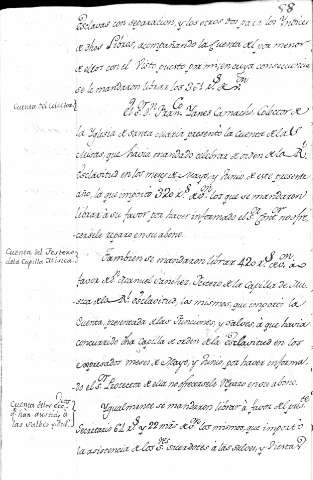 58
Esclavas con separacion, y los otros dos para los Yndices
de dhos Libros, acompañando la Cuenta del por menor
de ellos con el Visto puesto por mi, en cuya consecuencia
se le mandaron librar los 361 r.s de v.on
Cuenta del Colector
El S.r D.n Fran.co Yanes Camacho Colector de
la Yglesia de Santa Maria presentó la Cuenta de las
Misas, que havia mandado celebrar de orden de la R.l
Esclavitud en los meses de Mayo, y Junio de este presente
año, la que importó 320 r.s de v.on los que se mandaron
librar á su favor por haver informado el S.r
reparo en su abono.
Cuenta del Tesorero
de la Capilla Musica
Tambien se mandaron librar 420 r.s de v.on á
favor de D.n Manuel Sanchez Tesorero de la Capilla de Mu-
sica de la R.l Esclavitud, los mismos, que importó la
Cuenta, presentada de las Funciones, y Salves, á que havia
concurrido dha Capilla de orden de la Esclavitud en los
expresados meses de Mayo, y Junio, por haver informa-
do el S.r Protector de ella no ofrecersele reparo en su abono.
Cuenta del
asistido á
las Salves y
Ygualmente se mandaron librar á favor del
Secretario 61 r.s y 22 mrs de v.on los mismos, que importó
la asistencia de los S.res Sacerdotes á las Salves, y